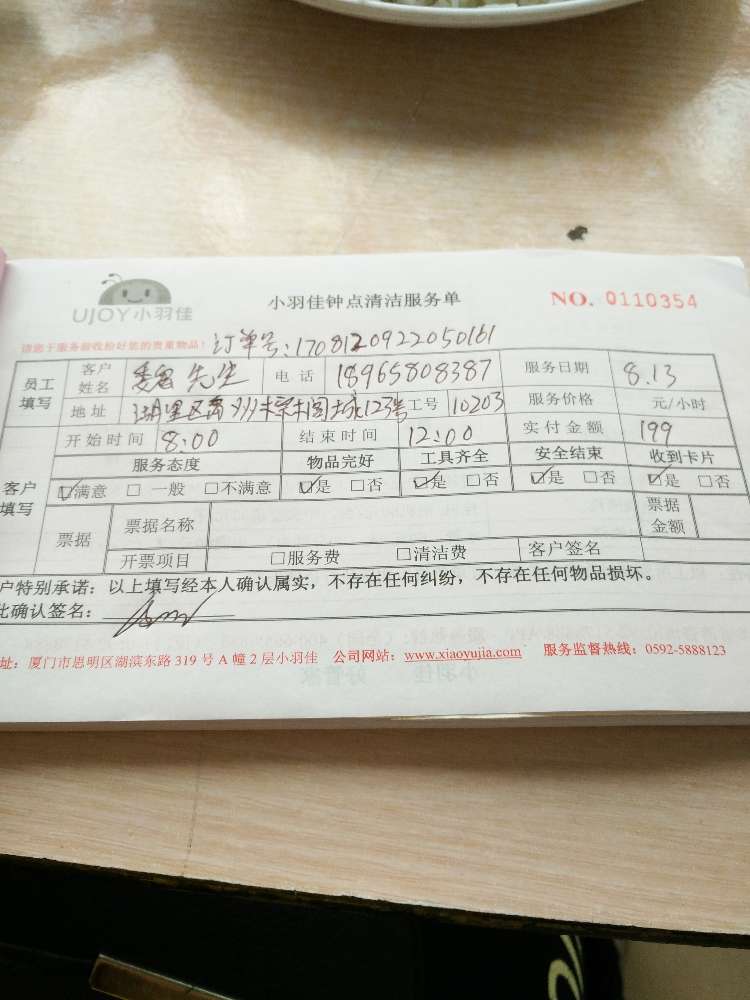 UJOY小羽佳
小羽佳钟点清洁服务单
NO. 0110354
订单号:1708120922050161
员工填写 客户姓名 魏 先生 电话 18965808387 服务日期 8.13
地址 湖里区 123号 工号 10203 服务价格 元/小时
开始时间 8:00 结束时间 12:00 实付金额 199
客户填写 服务态度 物品完好 工具齐全 安全结束 收到卡片
☑满意 □一般 □不满意 ☑是 □否 ☑是 □否 ☑是 □否 ☑是 □否
票据 票据名称 票据金额
开票项目 □服务费 □清洁费 客户签名
户特别承诺：以上填写经本人确认属实，不存在任何纠纷，不存在任何物品损坏。
此确认签名：
址：厦门市思明区湖滨东路 319 号 A 幢 2 层小羽佳 公司网站：www.xiaoyujia.com 服务监督热线：0592-5888123